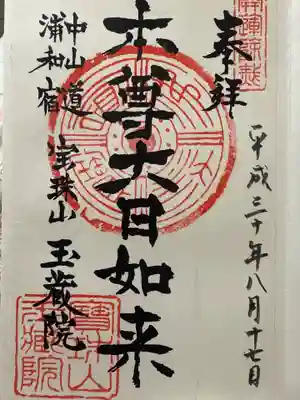 奉拝
平成三十年八月十七日
本尊大日如来
中山道
浦和宿
宝珠山
玉蔵院